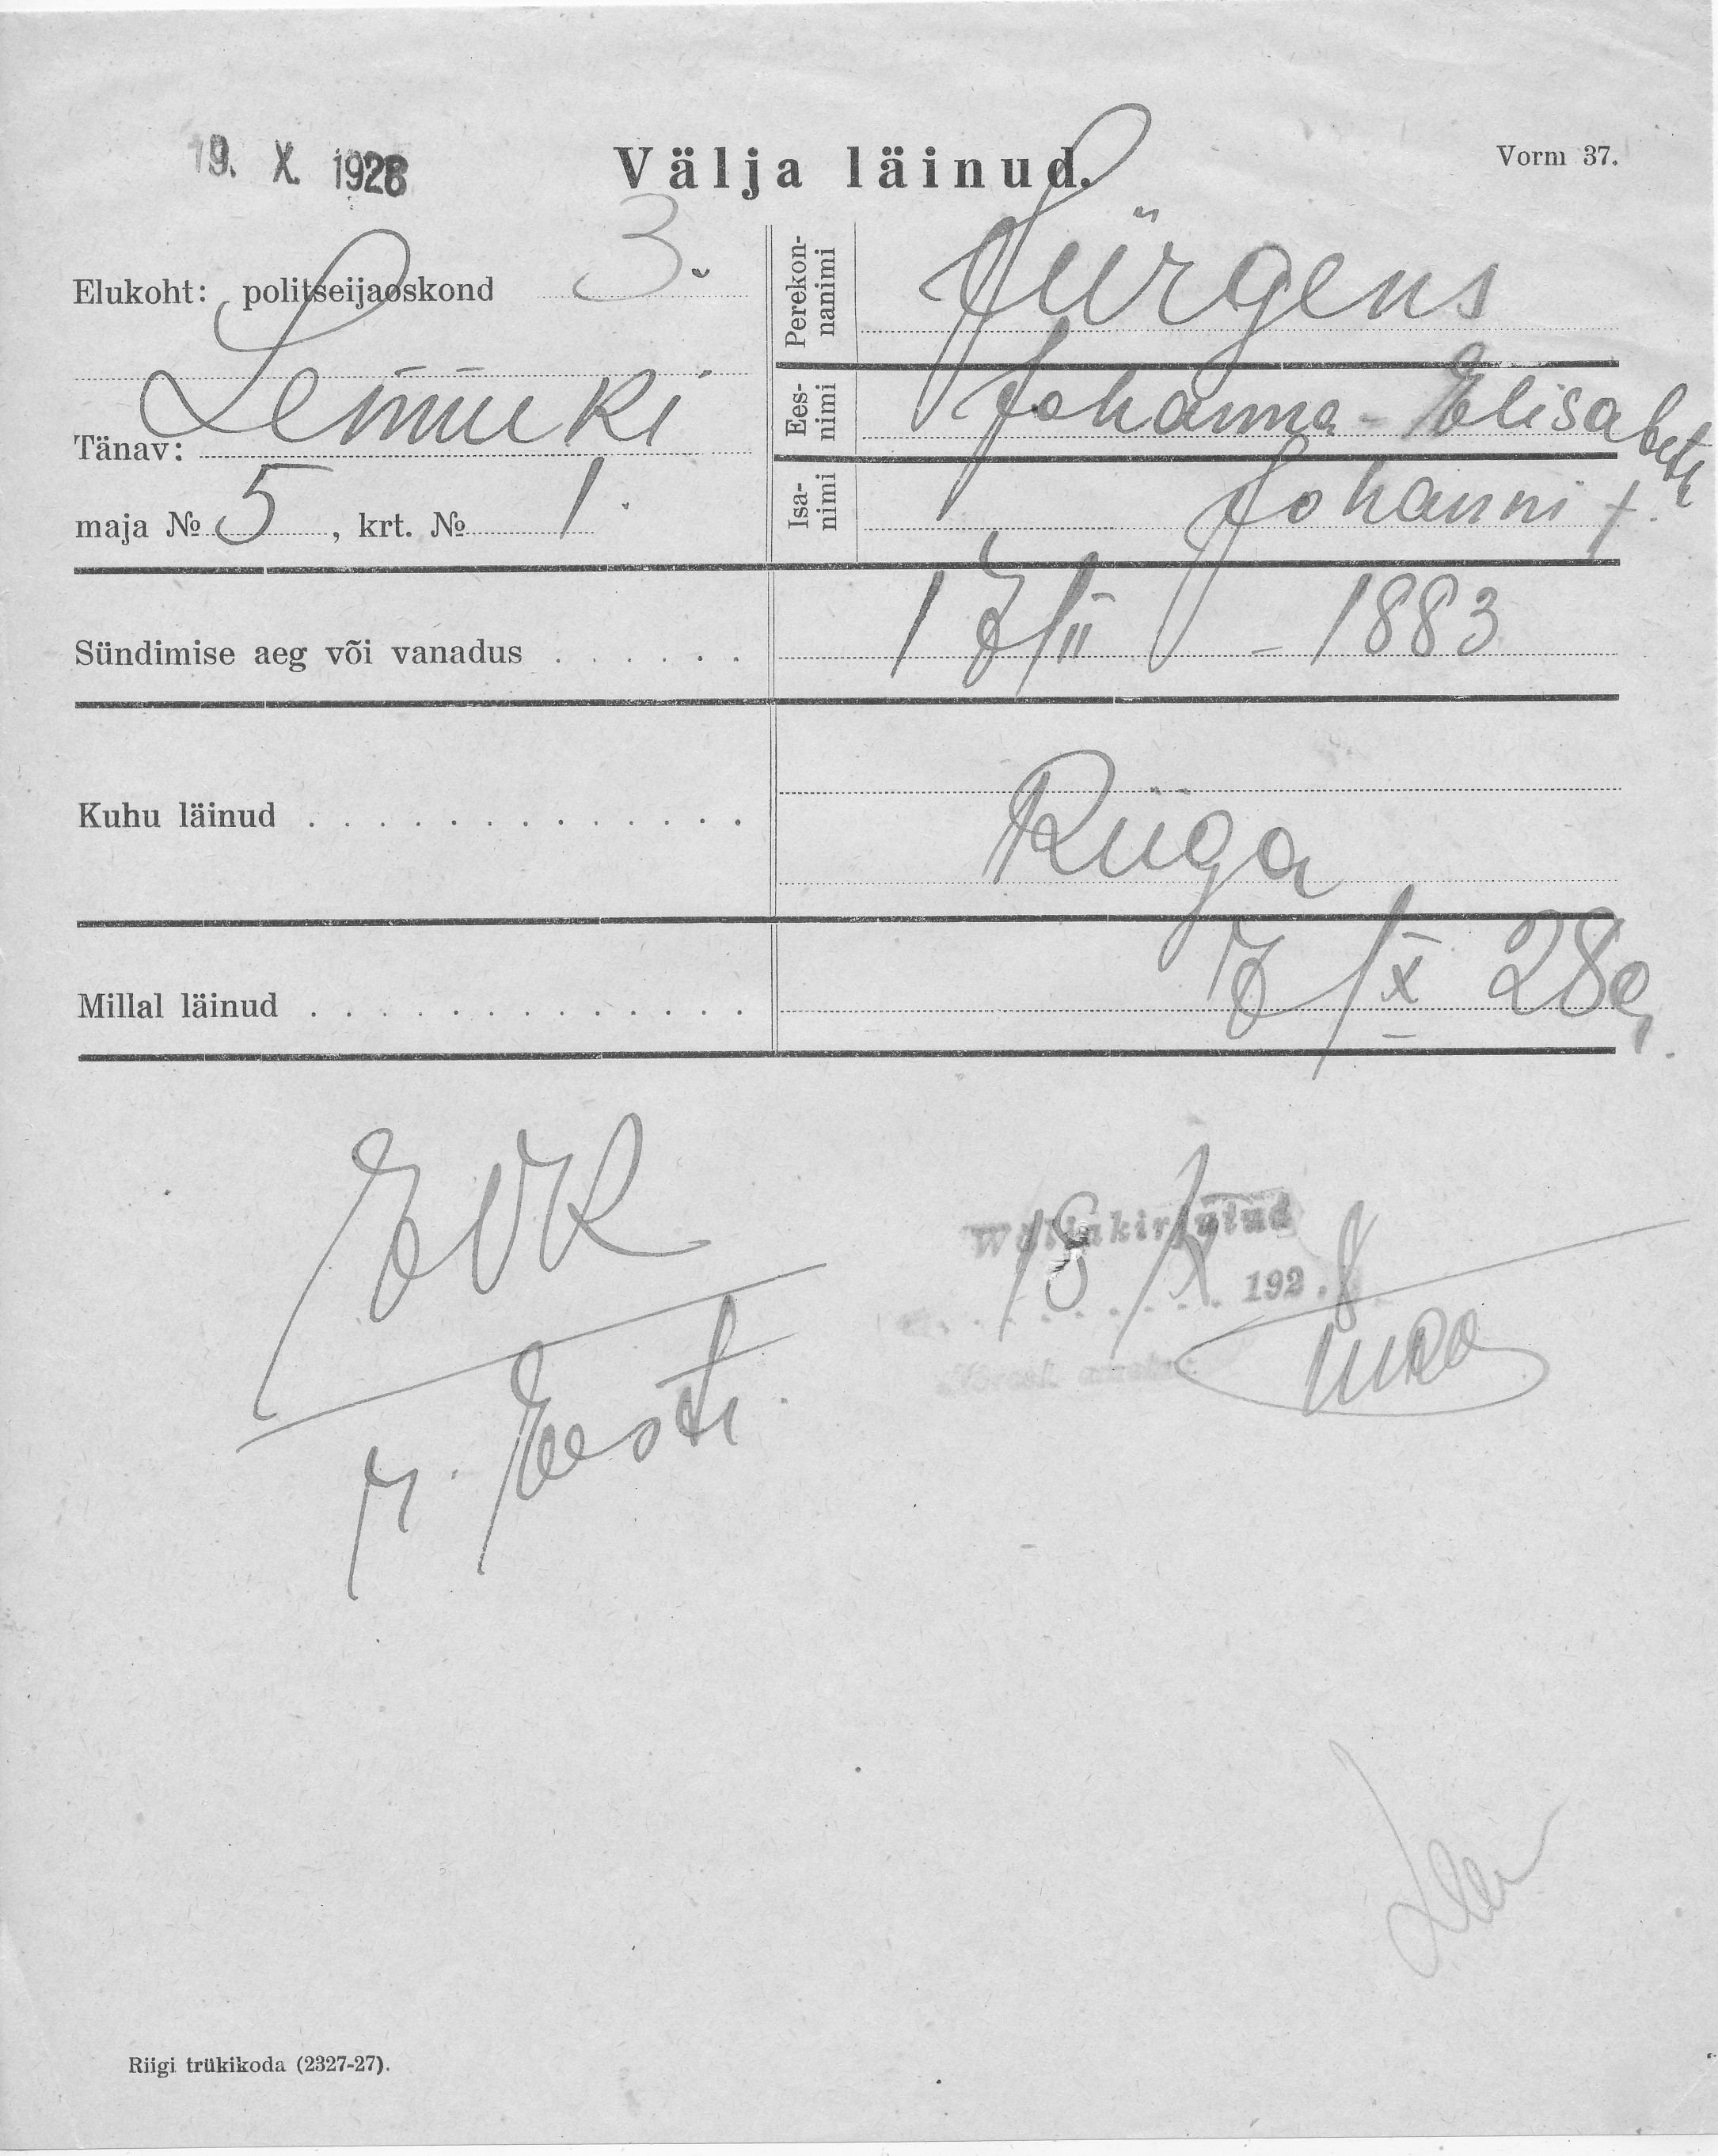 19. X. 1928
Välja läinud.
Vorm 37.
Elukoht: politseijaoskond 3.
Tänav: Lennuki
maja № 5, krt. № 1.
Perekon-
nanimi
Jürgens
Ees-
nimi
Johanna-Elisabeth
Isa-
nimi
Johanni t.
Sündimise aeg või vanadus . . . . . . 17/II - 1883
Kuhu läinud . . . . . . . . . . . . . Riiga
Millal läinud . . . . . . . . . . . . . 7/X 28a.
EVK
r. Eesti.
Wäljakirjutud
18/X 1928
Riigi trükikoda (2327-27).